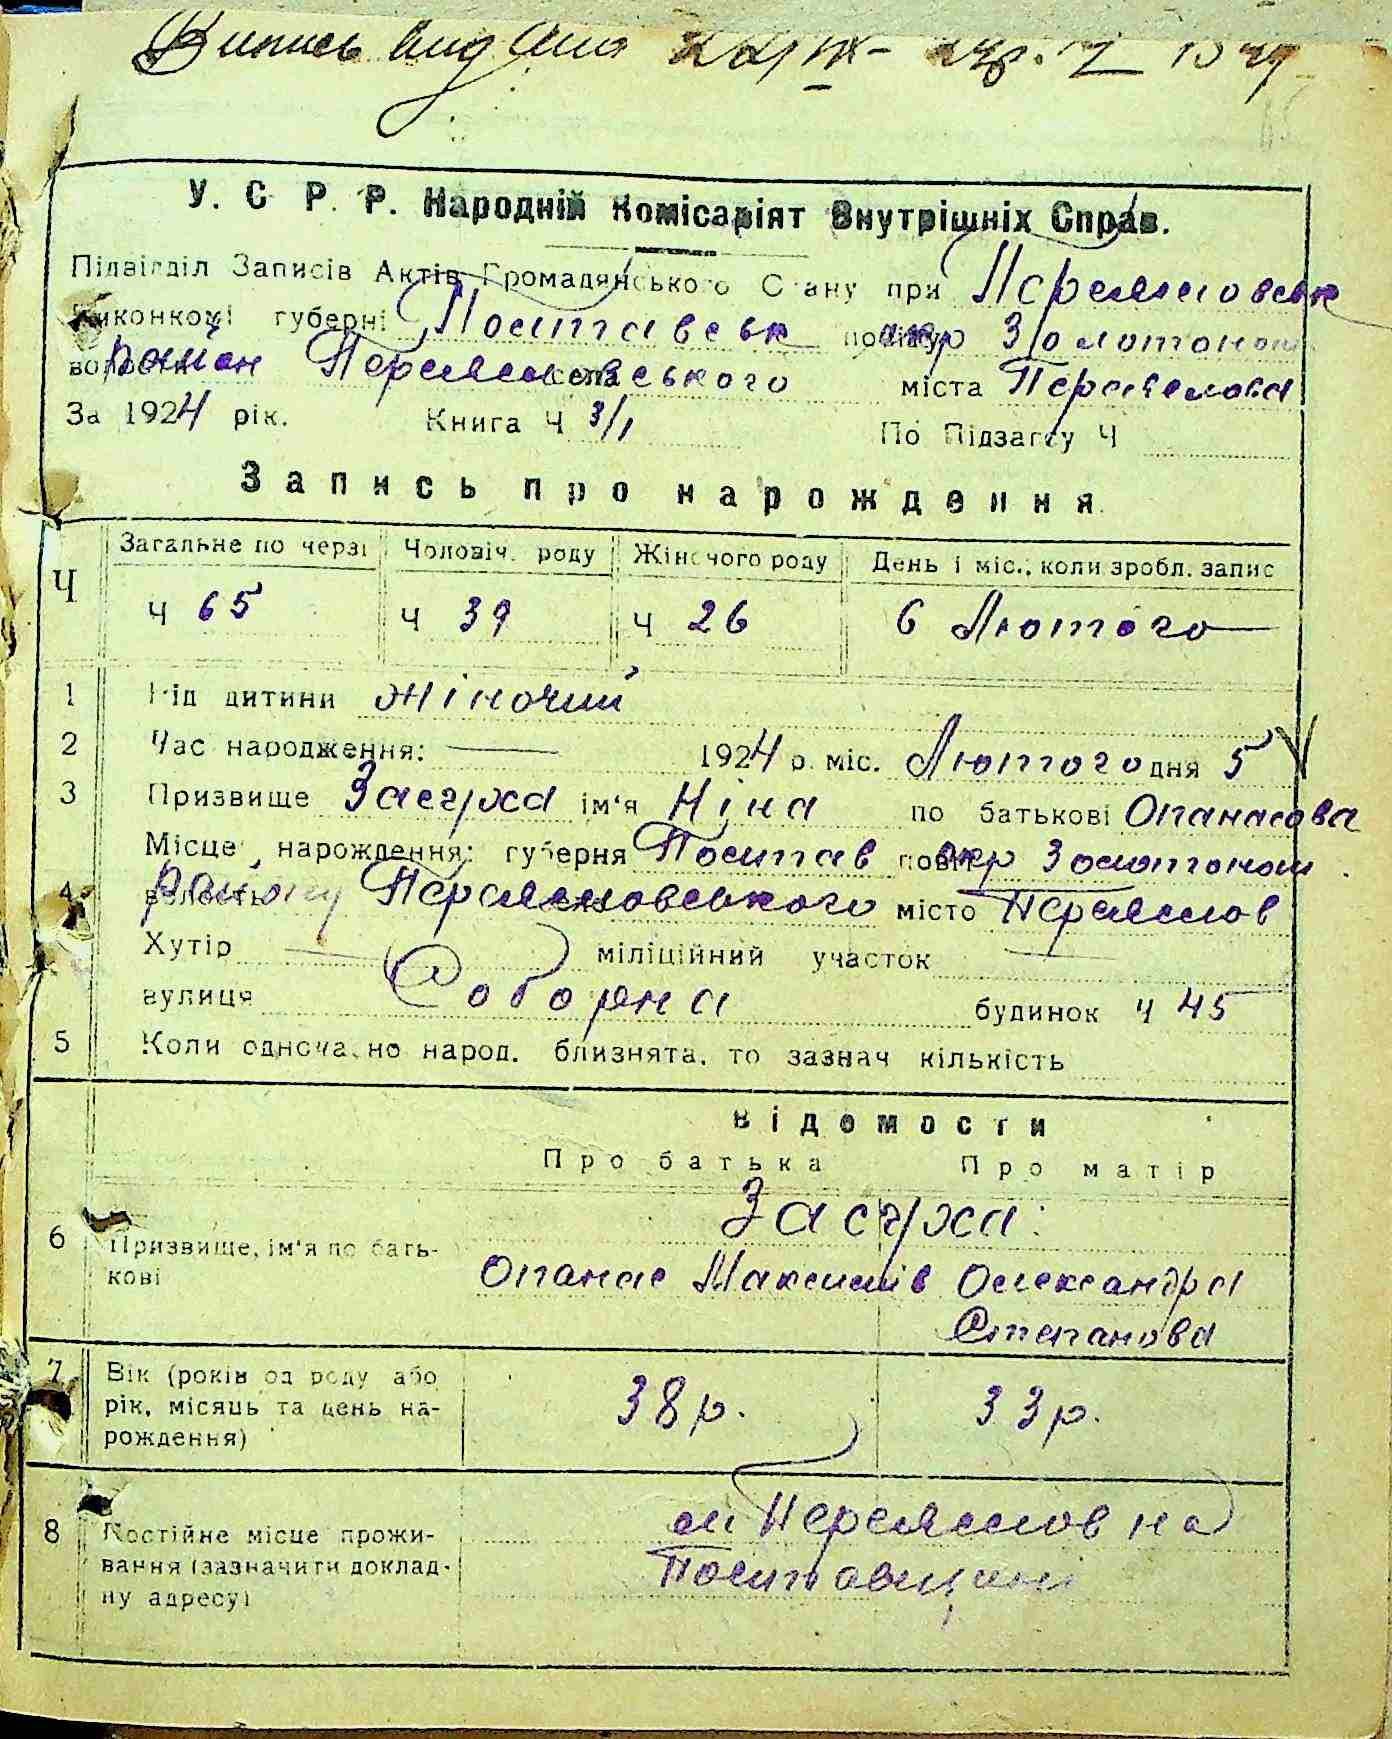 Випись видана
У. С. Р. Р. Народній Комісаріят Внутрішніх Справ.
Підвідділ Записів Актів Громадянського Стану при Переяславськ
Виконкомі губерні Полтавськ повіту окр Золотонош
волости район Переяславського села міста Переяслова
За 1924 рік. Книга Ч 3/1 По Підзагсу Ч
Запись про нарождення
Ч Загальне по черзі Чоловіч. роду Жіночого роду День і міс., коли зробл. запис
Ч 65 Ч 39 Ч 26 6 Лютого
1 Рід дитини жіночий
2 Час народження: 1924 р. міс. Лютого дня 5
3 Призвище Засуха ім'я Ніна по батькові Опанасова
Місце нарождення: губерня Полтав повіт окр Золотонош
4 волость району Переясловського село місто Переяслов
Хутір міліційний участок
вулиця Соборна будинок ч 45
5 Коли одночасно народ. близнята, то зазнач кількість
Відомости
Про батька Про матір
Засуха
6 Призвище, ім'я по бать-
кові Опанас Максимів Олександра
Степанова
7 Вік (років од роду або
рік, місяць та день на- 38 р. 33 р.
рождення)
м Переяслов на
8 Постійне місце прожи-
вання (зазначити доклад- Полтавщині
ну адресу)